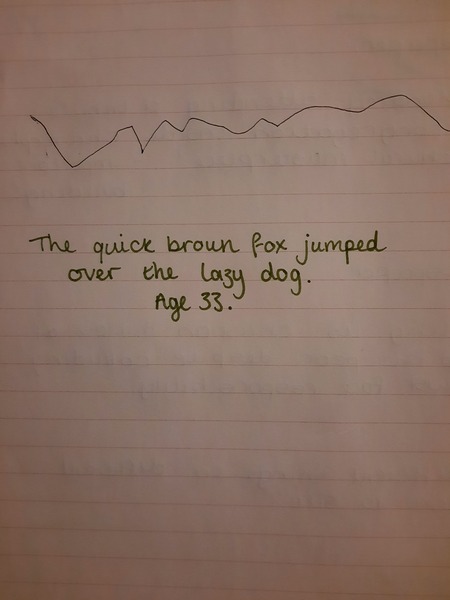 The quick broun fox jumped
over the lazy dog.
Age 33.